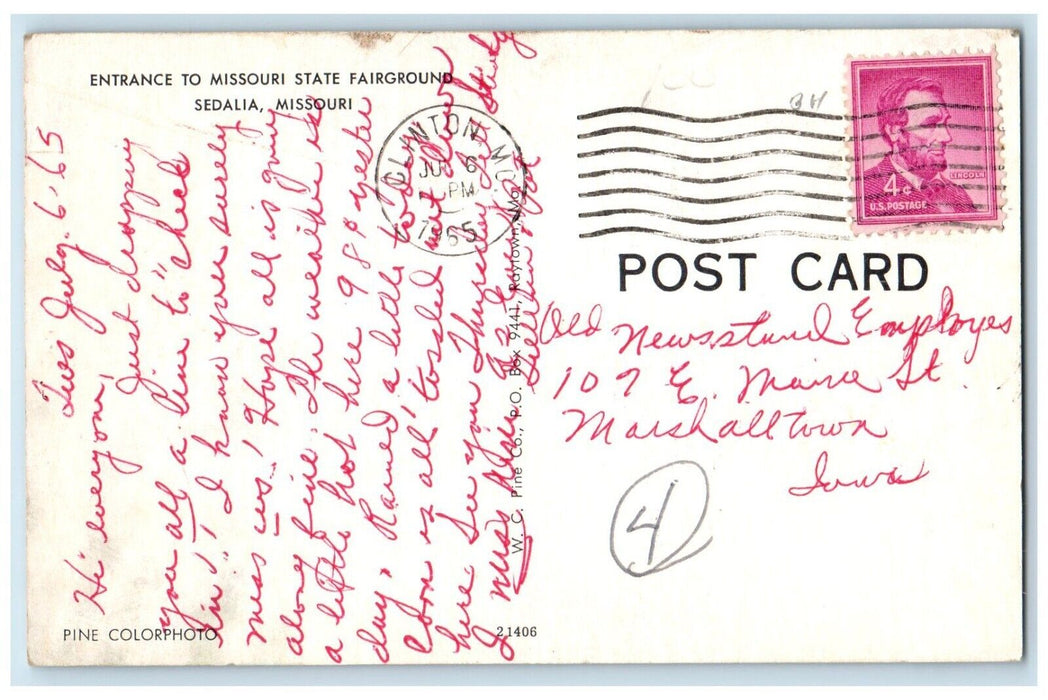 ENTRANCE TO MISSOURI STATE FAIRGROUND
SEDALIA, MISSOURI
Tues July. 6 '65
Hi' everyone,
Just dropping
you all a line to "check
in"! I know you surely
miss us! Hope all is going
along fine. The weather is
a little hot here 98° yester
day. Rained a little today
Corn is all tossled out down
here. See you Thursday
W. C. Pine Co., P.O. Box 9441, Raytown, Mo.
PINE COLORPHOTO
21406
CLINTON, MO.
JUL 6
PM
1965
4¢
LINCOLN
U.S. POSTAGE
BH
POST CARD
Old Newsstand Employes
107 E. Maine St.
Marshalltown
Iowa
4